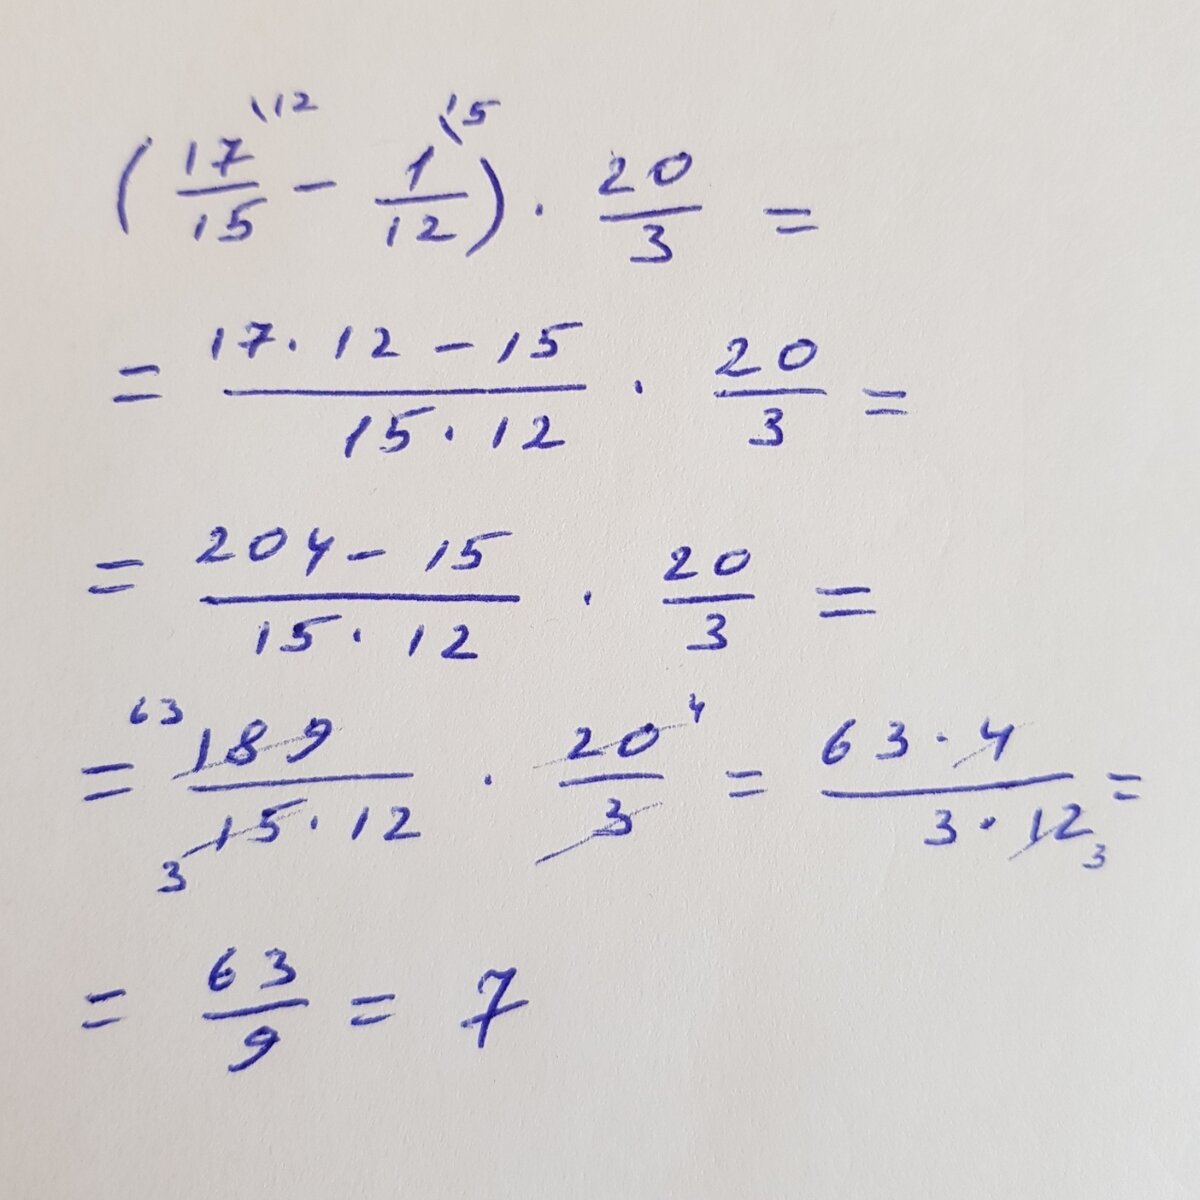 (17\12/15 - 1\15/12) · 20/3 =
= 17·12-15/15·12 · 20/3 =
= 204-15/15·12 · 20/3 =
= 63 189/3 15·12 · 20 4/3 = 63·4/3·12 3 =
= 63/9 = 7